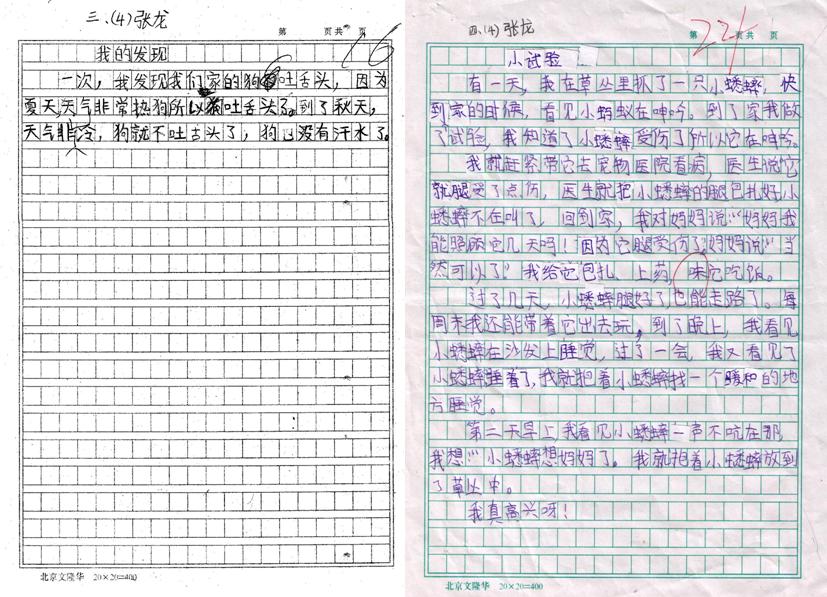 三、(4) 张龙
第 页共 页
16
我的发现
一次，我发现我们家的狗吐舌头，因为
夏天，天气非常热狗所以狗吐舌头了。到了秋天，
天气非冷，狗就不吐舌头了，狗也没有汗水了。
北京文隆华 20×20=400
四、(4) 张龙
第 页共 页
22
小试验
有一天，我在草丛里抓了一只小蟋蟀，快
到家的时候，看见小蚂蚁在呻吟。到了家我做
了试验，我知道了小蟋蟀受伤了所以它在呻吟。
我就赶紧带它去宠物医院看病，医生说它
就腿受了点伤，医生就把小蟋蟀的腿包扎好，小
蟋蟀不在叫了，回到家，我对妈妈说：“妈妈我
能照顾它几天吗！因为它腿受伤了。妈妈说“当
然可以了！”我给它包扎、上药，味它吃饭。
过了几天，小蟋蟀腿好了也能走路了。每
周末我还能带着它出去玩，到了晚上，我看见
小蟋蟀在沙发上睡觉，过了一会，我又看见了
小蟋蟀睡着了，我就抱着小蟋蟀找一个暖和的地
方睡觉。
第二天早上，我看见小蟋蟀一声不吭在那，
我想：“小蟋蟀想妈妈了。我就抱着小蟋蟀放到
了草丛中。
我真高兴呀！
北京文隆华 20×20=400